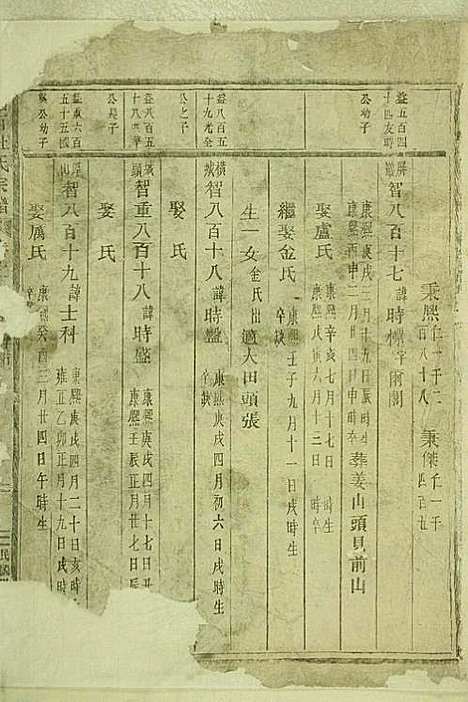 秉熙仁一千二百八十八 秉傑仁一千四百廿
益五百四十四友時公幼子
智八百十七諱時標字爾閣
康熙庚戌三月廿一日戌時生
康熙丙申二月四日申時卒葬姜山頭貝前山
娶盧氏 康熙辛亥七月十七日 時生 康熙庚寅六月十三日 時卒
繼娶金氏 康熙壬子九月十一日戌時生 卒缺
生一女金氏出適大田頭張
益八百五十九光全公之子
橫城智八百十八諱時盤 康熙庚戌四月初六日戌時生 卒缺
娶 氏
益八百五十八
公長子
城頭智重八百十八諱時盛 康熙庚戌四月十七日丑 康熙壬辰正月廿七日辰
娶 氏
益六百五十五國
公幼子
智八百十九諱士科 康熙庚戌四月二十日亥時生 雍正乙卯正月十九日戌時
娶厲氏 康熙癸酉三月廿四日午時生
氏宗譜
民國